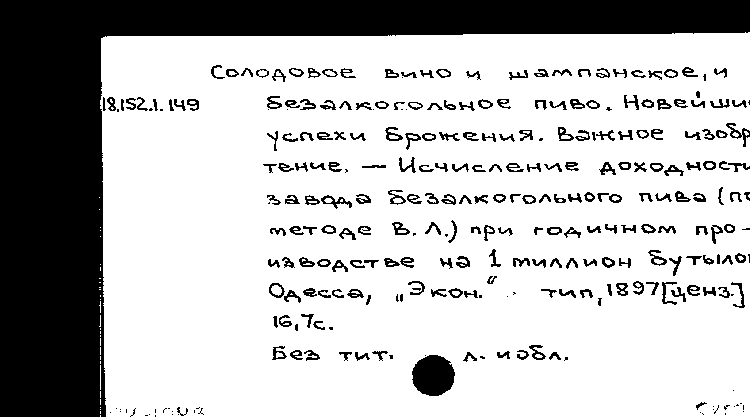 Солодовое вино и шампанское, и
18.152.1.149 безалкогольное пиво. Новейшие
успехи брожения. Важное изобр
тение. — Исчисление доходности
завода безалкогольного пива (по
методе В. Л.) при годичном про-
изводстве на 1 миллион бутылок
Одесса, „Экон.“ тип, 1897 [ценз.]
16,7с.
Без тит. л. и обл.